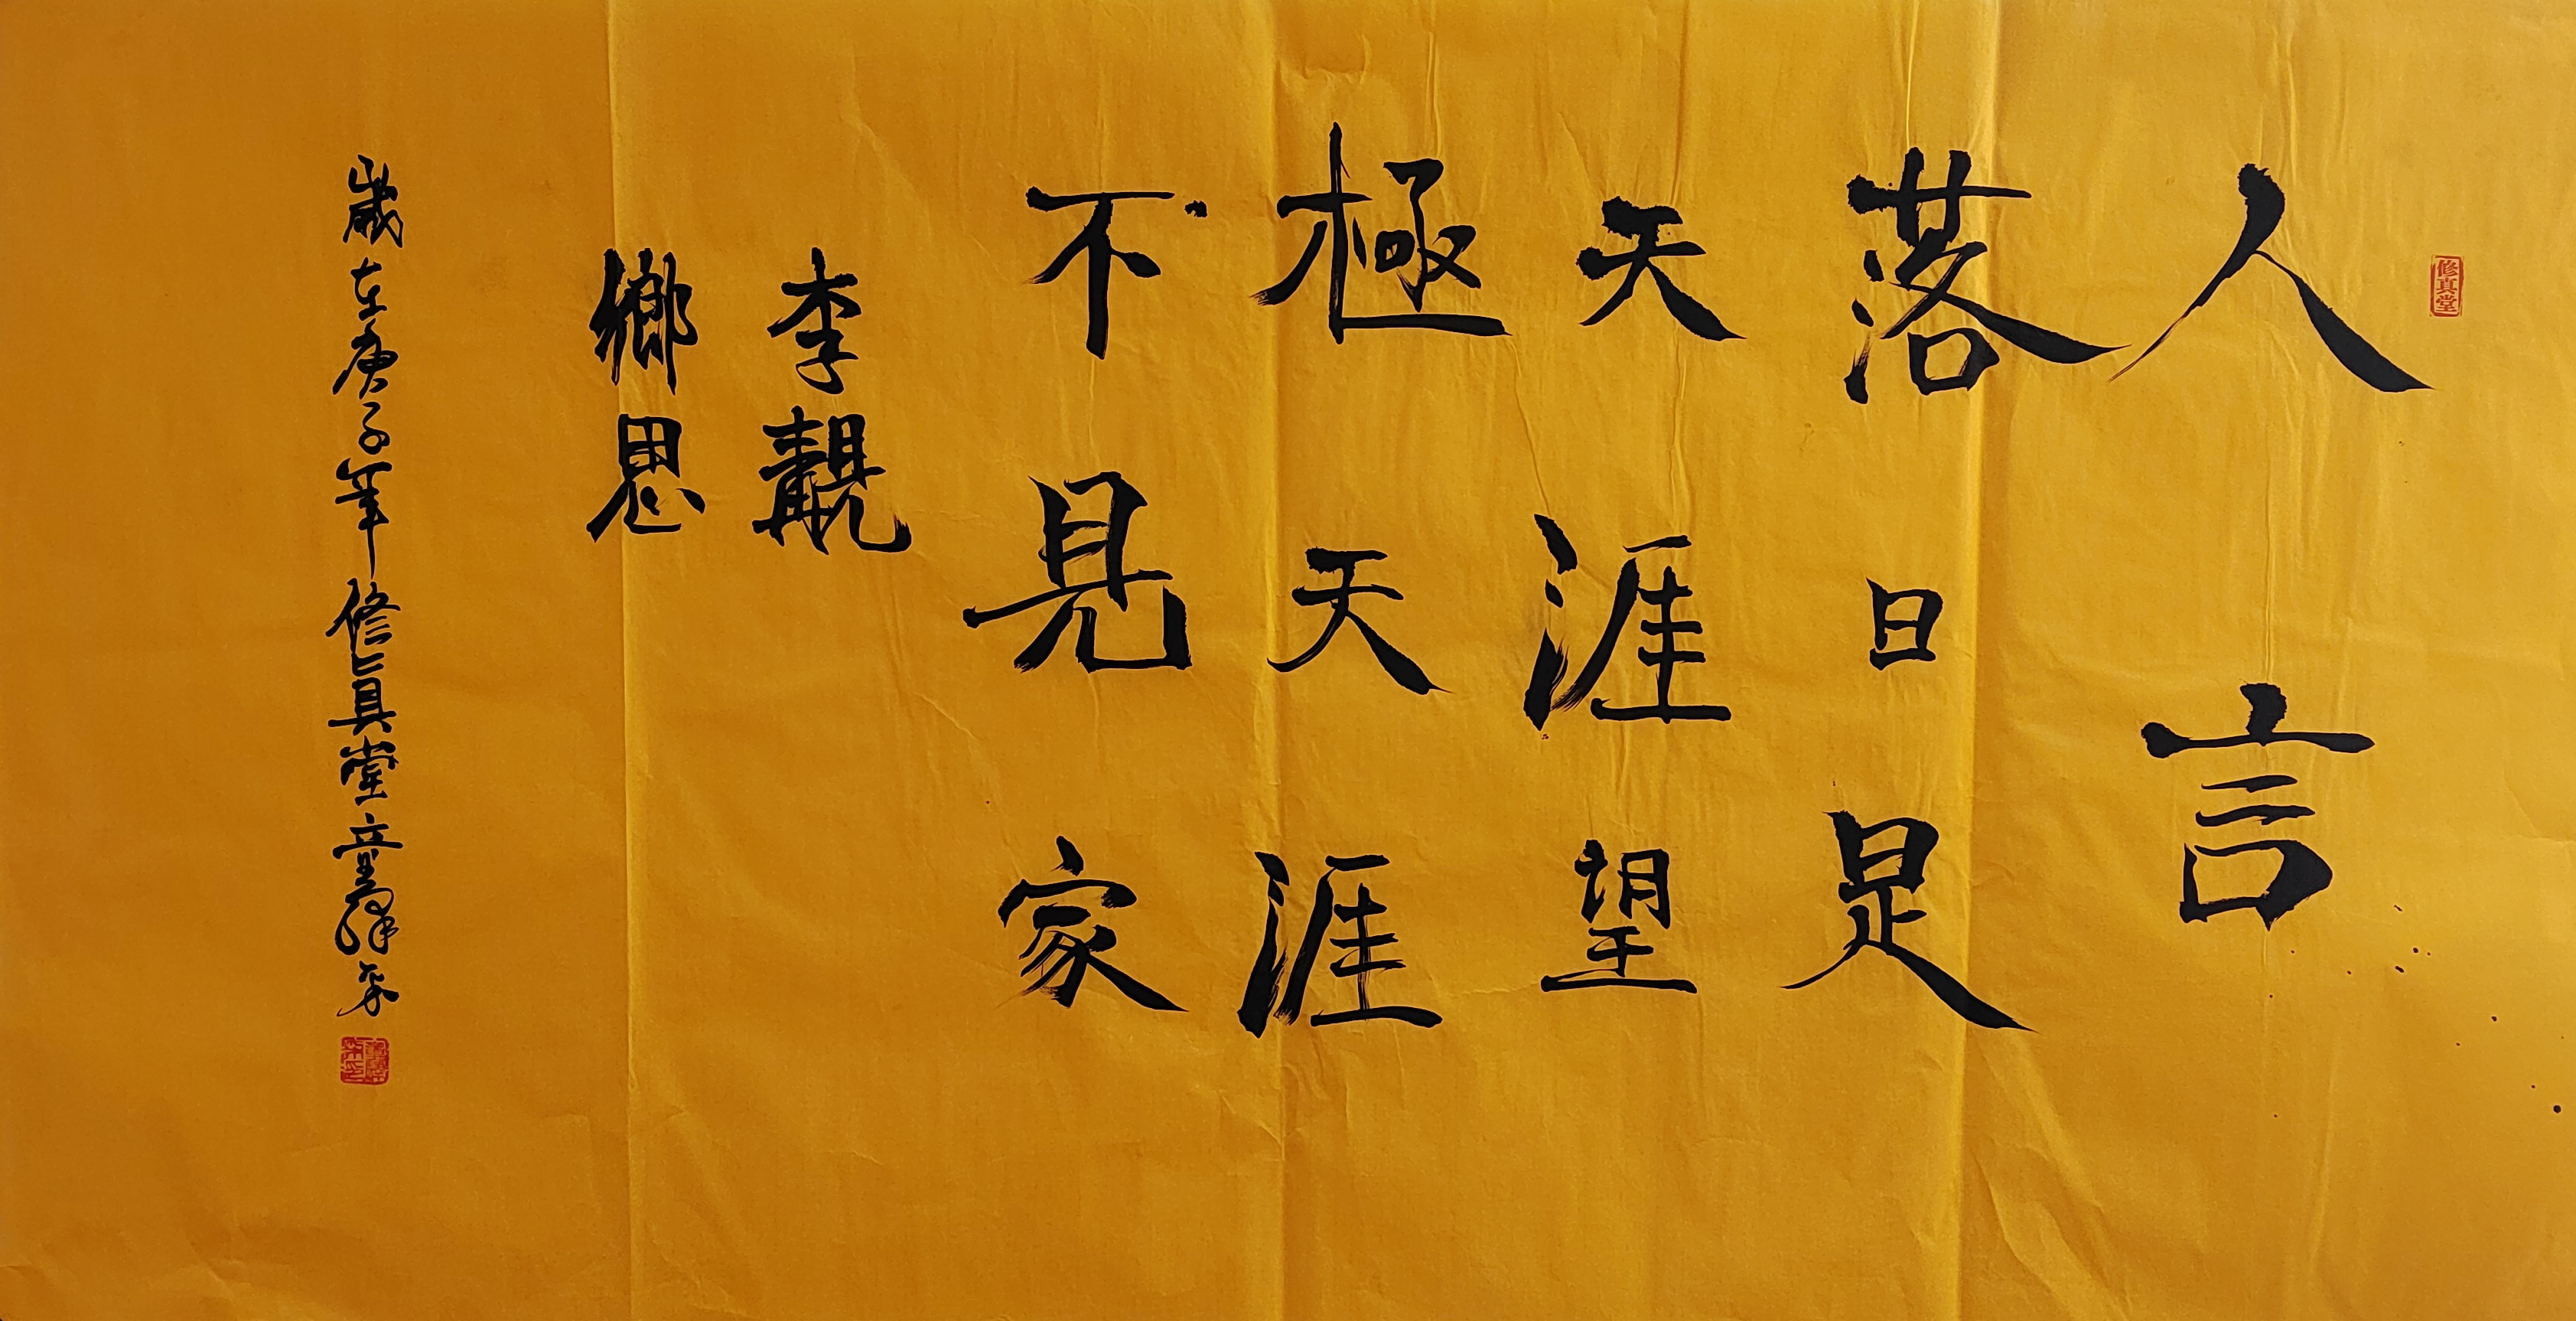 修真堂
人言
落日是
天涯望
極天涯
不見家
李覯
鄉思
歲在庚子年修真堂童